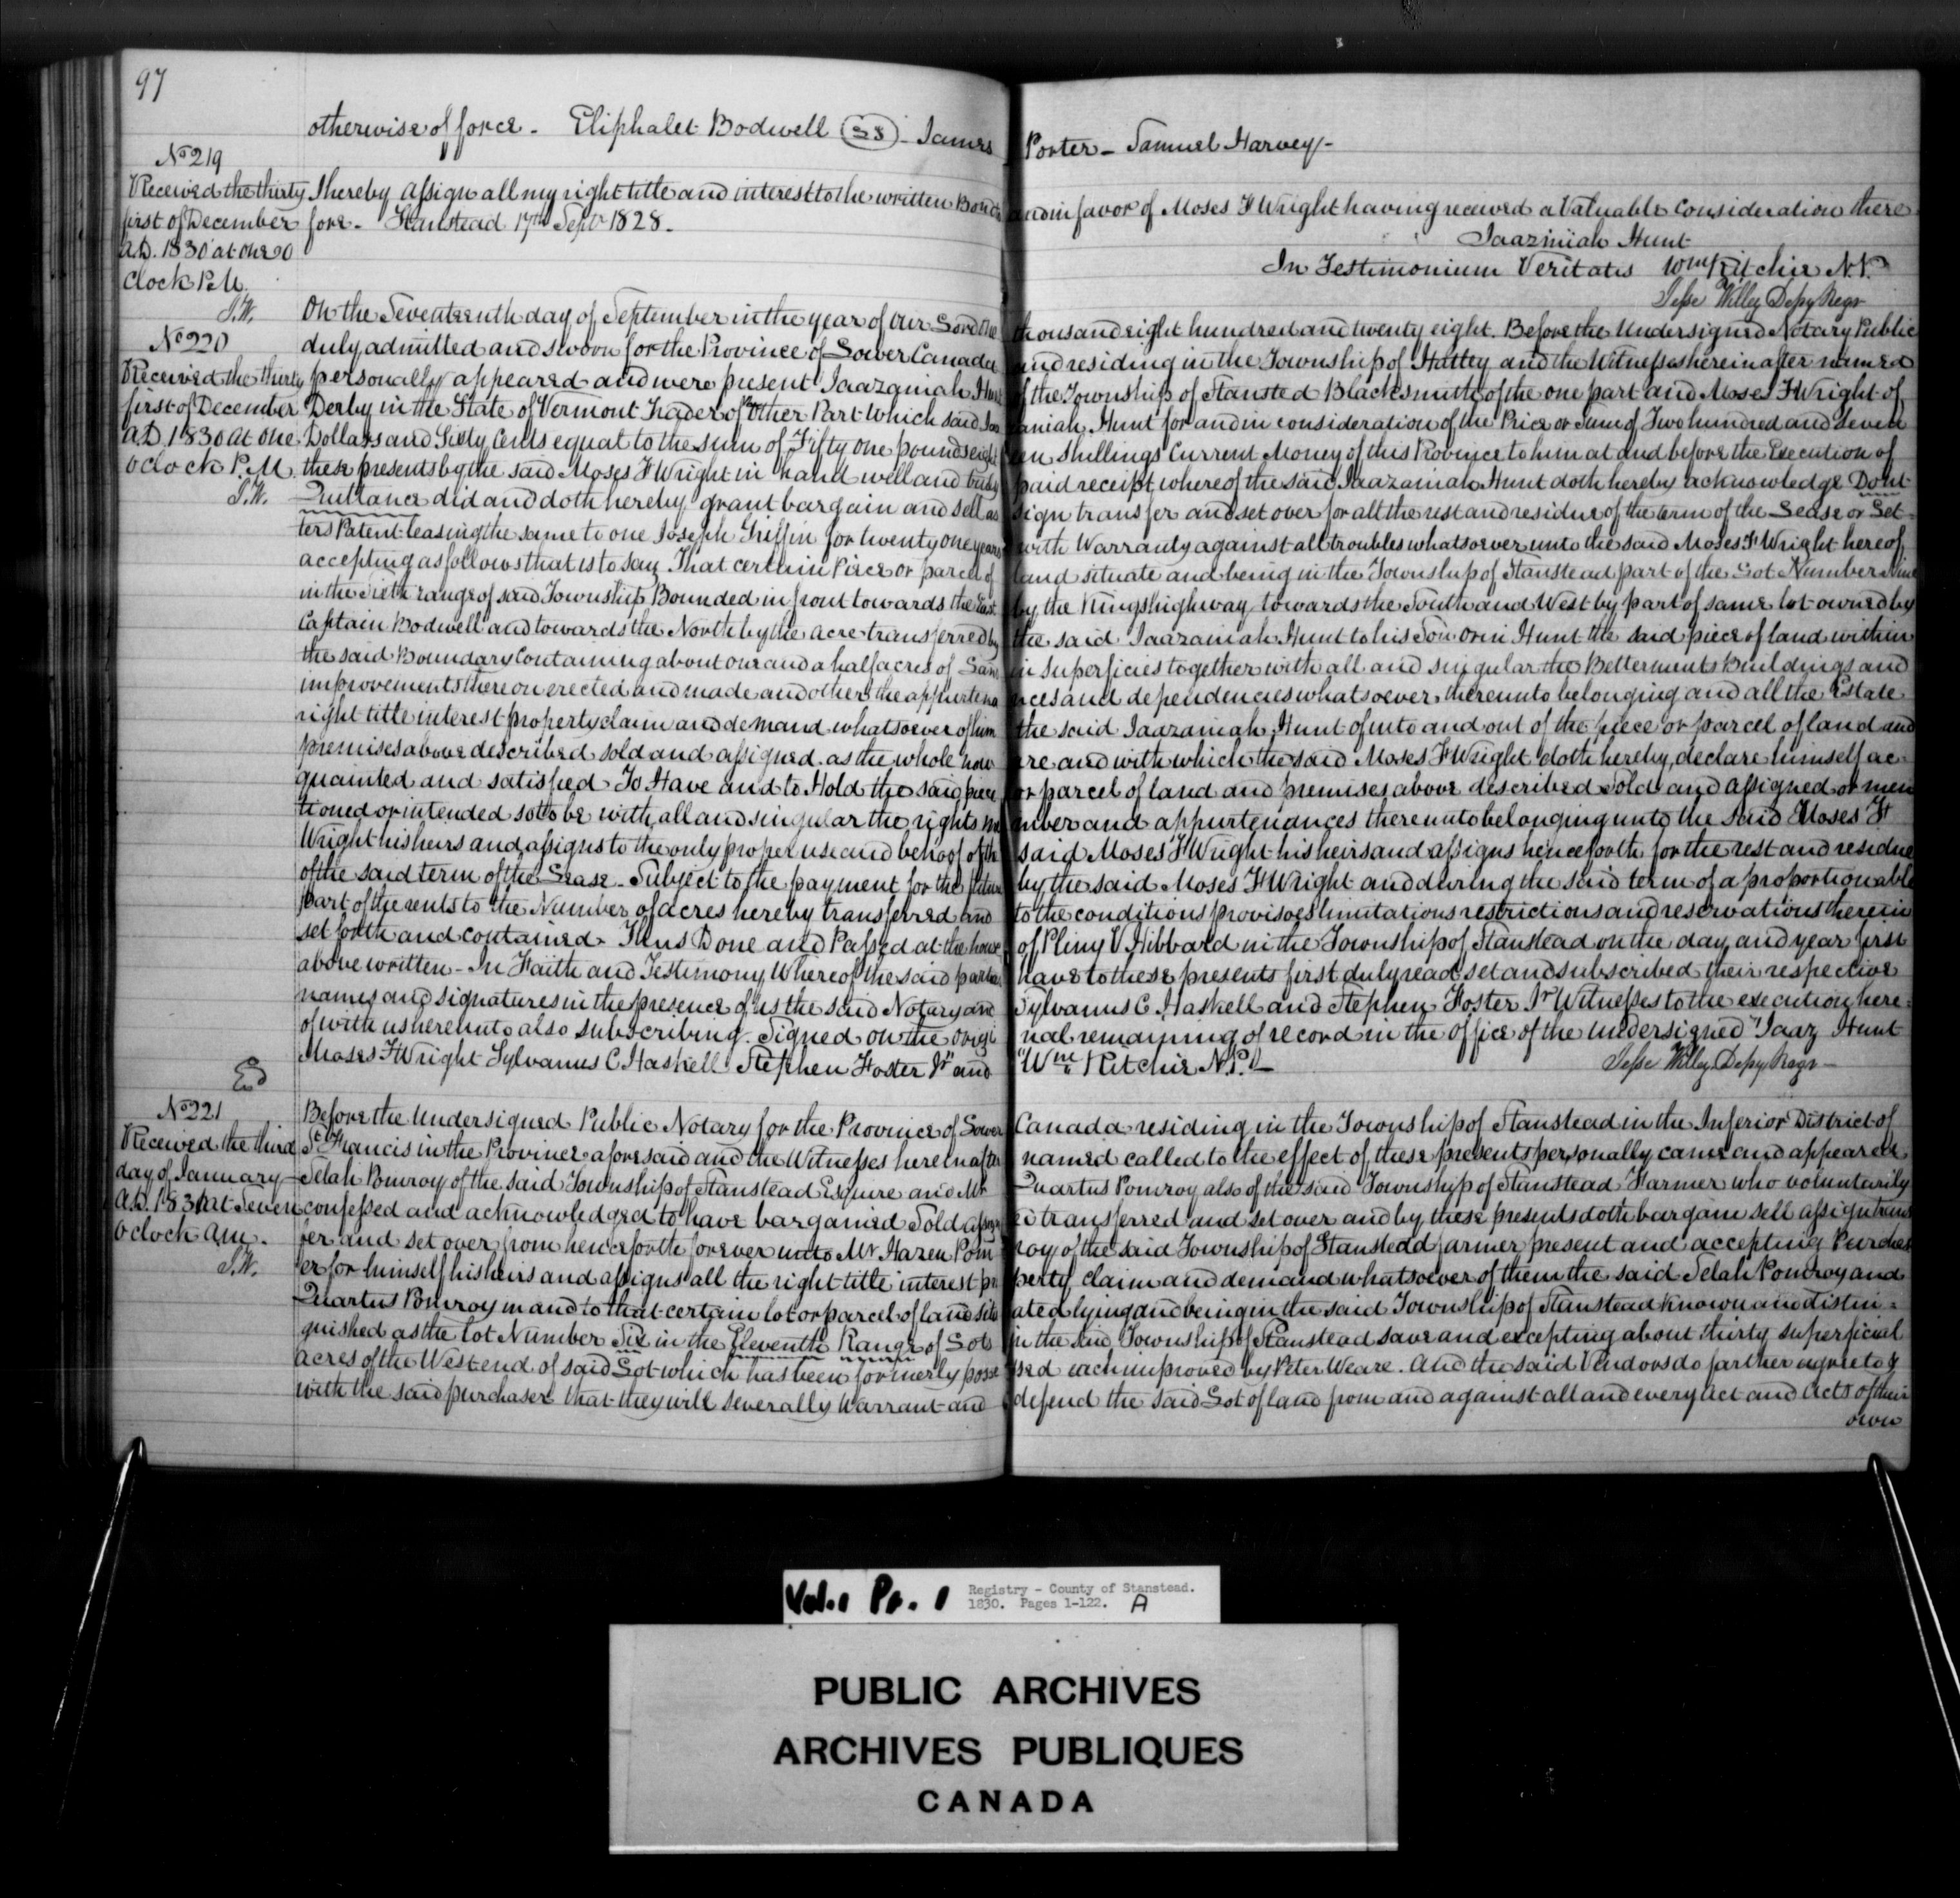 97
otherwise of force - Eliphalet Bodwell (SS) - James Porter - Samuel Harvey -
No 219
Received the thirty
first of December
A.D. 1830 at one O
Clock P.M.
J.W.
I hereby Assign all my right title and interest to the written Bond and in favor of Moses F Wright having received a Valuable Consideration there
fore - Stanstead 17th Septr 1828.
Jaazniah Hunt
In Testimonium Veritatis Wm Ritchie N.P.
Jesse Willey Depy Regr
No 220
Received the thirty
first of December
A.D. 1830 at one
oClock P.M.
J.W.
On the Seventeenth day of September in the year of our Lord one thousand eight hundred and twenty eight. Before the Undersigned Notary Public
duly admitted and sworn for the Province of Lower Canada and residing in the Township of Hatley and the Witnesses hereinafter named
personally appeared and were present Jaazaniah Hunt of the Township of Stansted Blacksmith of the one part and Moses F Wright of
Derby in the State of Vermont Trader of other Part Which said Jaazaniah Hunt for and in consideration of the Price or Sum of Two hundred and Seven
Dollars and Sixty Cents equal to the sum of Fifty one pounds eighteen Shillings Current Money of this Province to him at and before the Execution of
these presents by the said Moses F Wright in hand well and truly paid receipt whereof the said Jaazaniah Hunt doth hereby acknowledge Dont
Quittance did and doth hereby grant bargain and sell assign transfer and set over for all the rest and residue of the term of the Lease or Let
ters Patent leasing the same to one Joseph Griffin for twenty one years with Warranty against all troubles whatsoever unto the said Moses F Wright hereof
accepting as follows that is to say That certain Piece or parcel of land situate and being in the Township of Stanstead part of the Lot Number Nine
in the range of said Township Bounded in front towards the East by the Kings highway towards the South and West by part of same lot owned by
Captain Bodwell and towards the North by the acre transferred by the said Jaazaniah Hunt to his Son Orin Hunt the said piece of land within
the said Boundary Containing about one and a half acres of Land in Superficies together with all and singular the Betterments Buildings and
improvements thereon erected and made and others the appurtenances and dependencies whatsoever thereunto belonging and all the Estate
right title interest property claim and demand whatsoever of him the said Jaazaniah Hunt of into and out of the piece or parcel of land and
premises above described sold and assigned as the whole now are and with which the said Moses F Wright doth hereby declare himself ac
quainted and satisfied To Have and to Hold the said piece or parcel of land and premises above described Sold and Assigned or men
tioned or intended so to be with all and singular the rights members and appurtenances thereunto belonging unto the said Moses F
Wright his heirs and assigns to the only proper use and behoof of the said Moses F Wright his heirs and assigns henceforth for the rest and residue
of the said term of the Lease - Subject to the payment for the future by the said Moses F Wright and during the said term of a proportionable
part of the rents to the Number of acres hereby transferred and to the conditions provisoes limitations restrictions and reservations therein
set forth and contained - Thus Done and Passed at the house of Pliny V Hibbard in the Township of Stanstead on the day and year first
above written - In Faith and Testimony Whereof the said parties have to these presents first duly read set and subscribed their respective
names and signatures in the presence of us the said Notary and Sylvanus C. Haskell and Stephen Foster Jr Witnesses to the execution here=
of with us hereunto also subscribing. Signed on the original remaining of record in the office of the undersigned "Jaaz Hunt
Moses F Wright Sylvanus C Haskell Stephen Foster Jr" and "Wm Ritchie N.P."
Jesse Willey Depy Regr -
Ed
No 221
Received the third
day of January
A.D. 1831 at Seven
oclock Am.
J.W.
Before the Undersigned Public Notary for the Province of Lower Canada residing in the Township of Stanstead in the Inferior District of
St Francis in the Province aforesaid and the Witnesses hereinafter named called to the effect of these presents personally came and appeared
Selah Pomroy of the said Township of Stanstead Esquire and Mr Quartus Pomroy also of the said Township of Stanstead Farmer who voluntarily
confessed and acknowledged to have bargained Sold assigned transferred and set over and by these presents doth bargain sell assign trans
fer and set over from henceforth forever unto Mr Hazen Pomroy of the said Township of Stanstead farmer present and accepting Purchas
er for himself his heirs and assigns all the right title interest property claim and demand whatsoever of them the said Selah Pomroy and
Quartus Pomroy in and to that certain lot or parcel of land situated lying and being in the said Township of Stanstead known and distin=
guished as the lot Number Six in the Eleventh Range of Lots in the said Township of Stanstead save and excepting about thirty superficial
acres of the West end of said Lot which has been formerly possessed improved by Peter Weare. And the said Vendors do farther agree to &
with the said purchaser that they will severally Warrant and defend the said Lot of land from and against all and every act and acts of their
own
Vol. 1 Pr. 1
Registry - County of Stanstead.
1830. Pages 1-122. A
PUBLIC ARCHIVES
ARCHIVES PUBLIQUES
CANADA